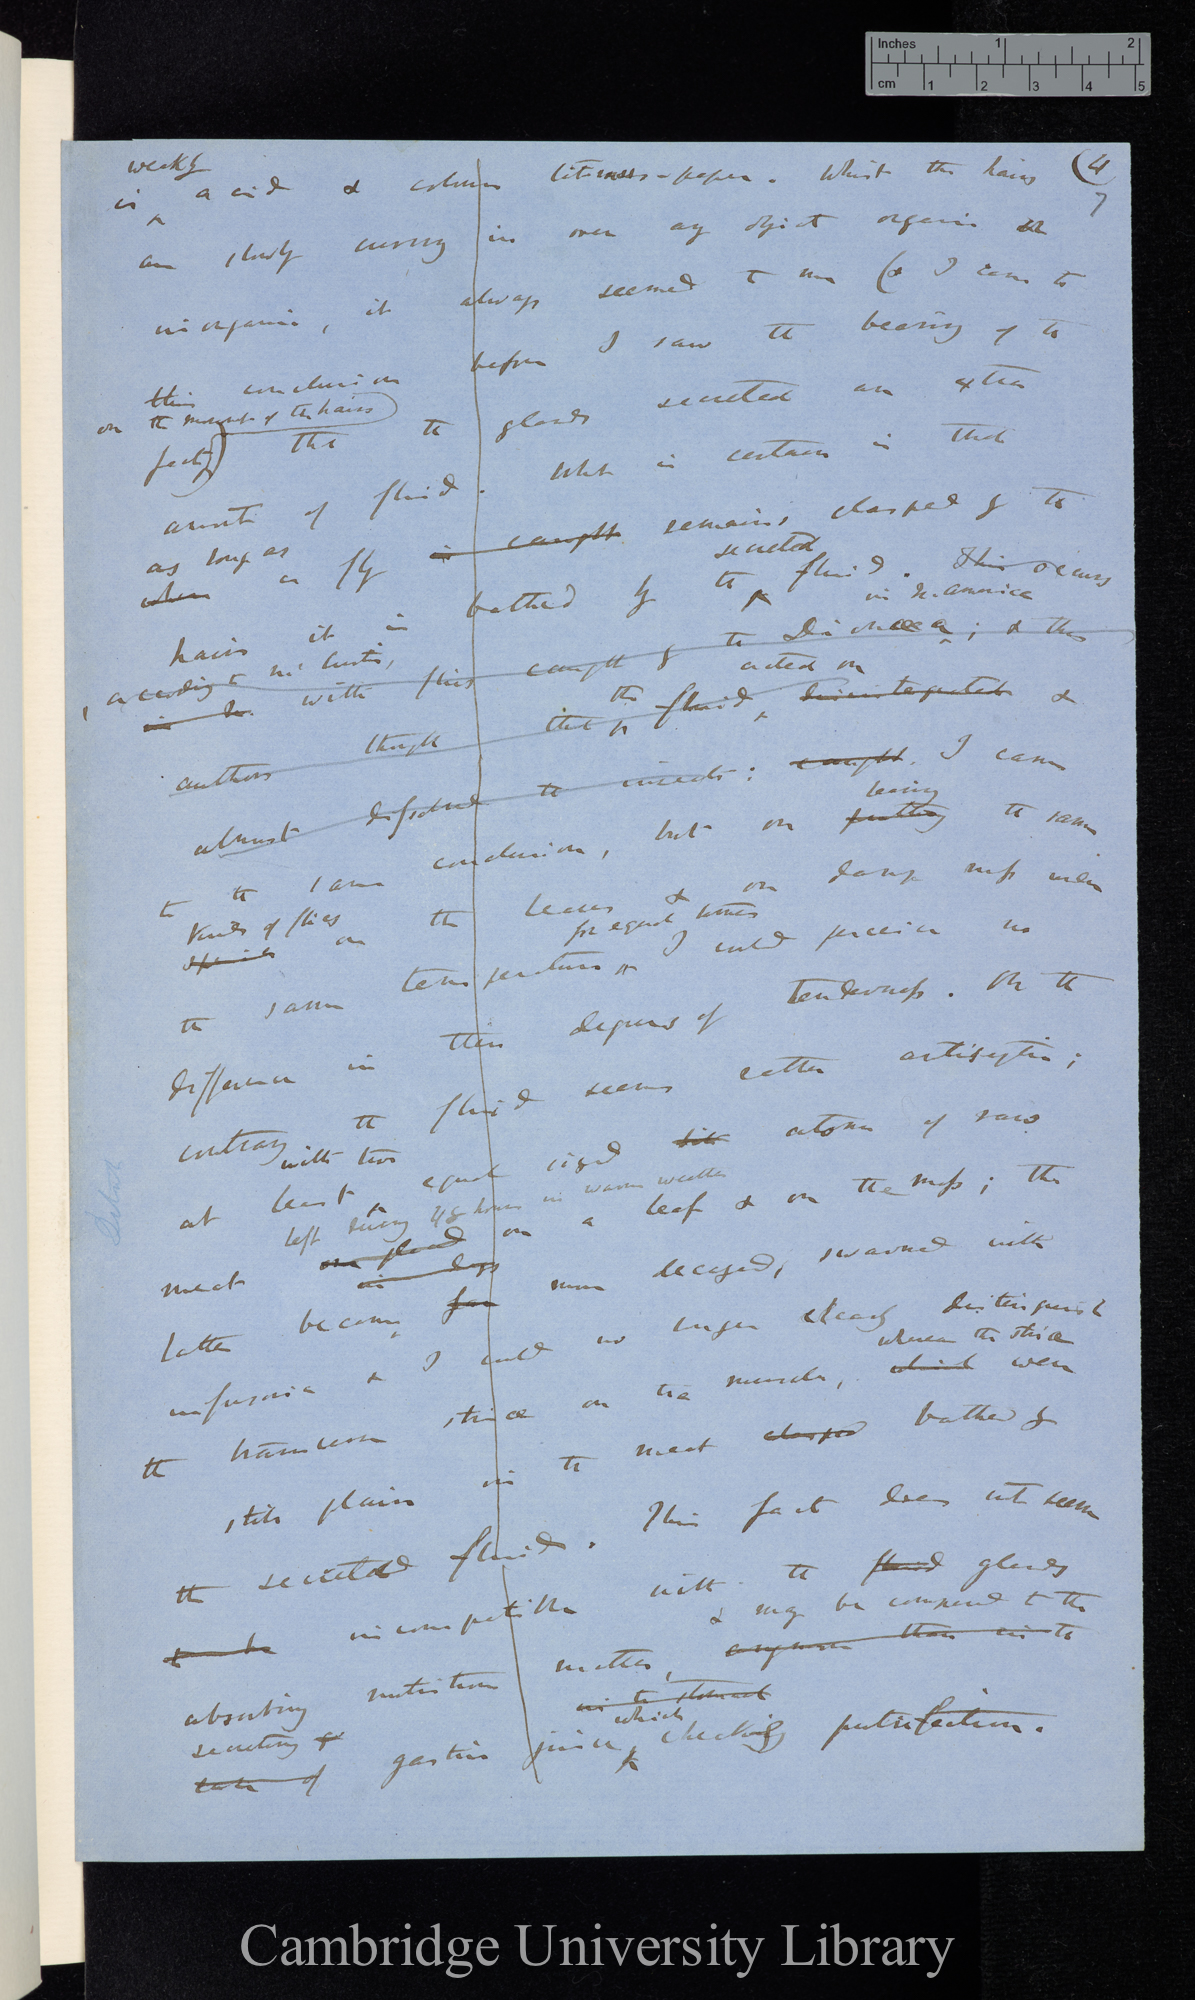 Inches 1 2
cm 1 2 3 4 5
(4
7
weakly
is acid & colours litmus-paper. Whilst the hairs
are slowly curving in over any object organic or
inorganic, it always seemed to me (& I came to
this conclusion before I saw the bearing of the
on the movement of the hairs
facts) that the glands secreted an extra
amount of fluid. What is certain is that
as long as
when a fly is caught remains clasped by the
secreted
hairs it is bathed by the fluid. This occurs
in N. America
according to
in the with flies caught by the Dionaea; & this
acted on
authors thought that the fluid disintegrated &
almost dissolved the insects: caught. I came
leaving
to the same conclusion, but on putting the same
kinds of flies
species on the leaves & on damp moss under
for equal times
the same temperature I could perceive no
difference in their degrees of tenderness. On the
contrary the fluid seems rather antiseptic;
with two
at least equal sized bits atoms of raw
left during 48 hours in warm weather
meat on a leaf & on the moss; the
in days
latter became far more decayed, swarmed with
infusoria & I could no longer clearly distinguish
the transverse striae on the muscles, which were
whereas the striae
still plain in the meat clasped bathed by
the secreted fluid. This fact does not seem
to be incompatible with the fluid glands
& may be compared to the
absorbing nutritious matter, any more than is to
in the stomach
secreting
of gastric juice, which checking putrefaction.
Cambridge University Library